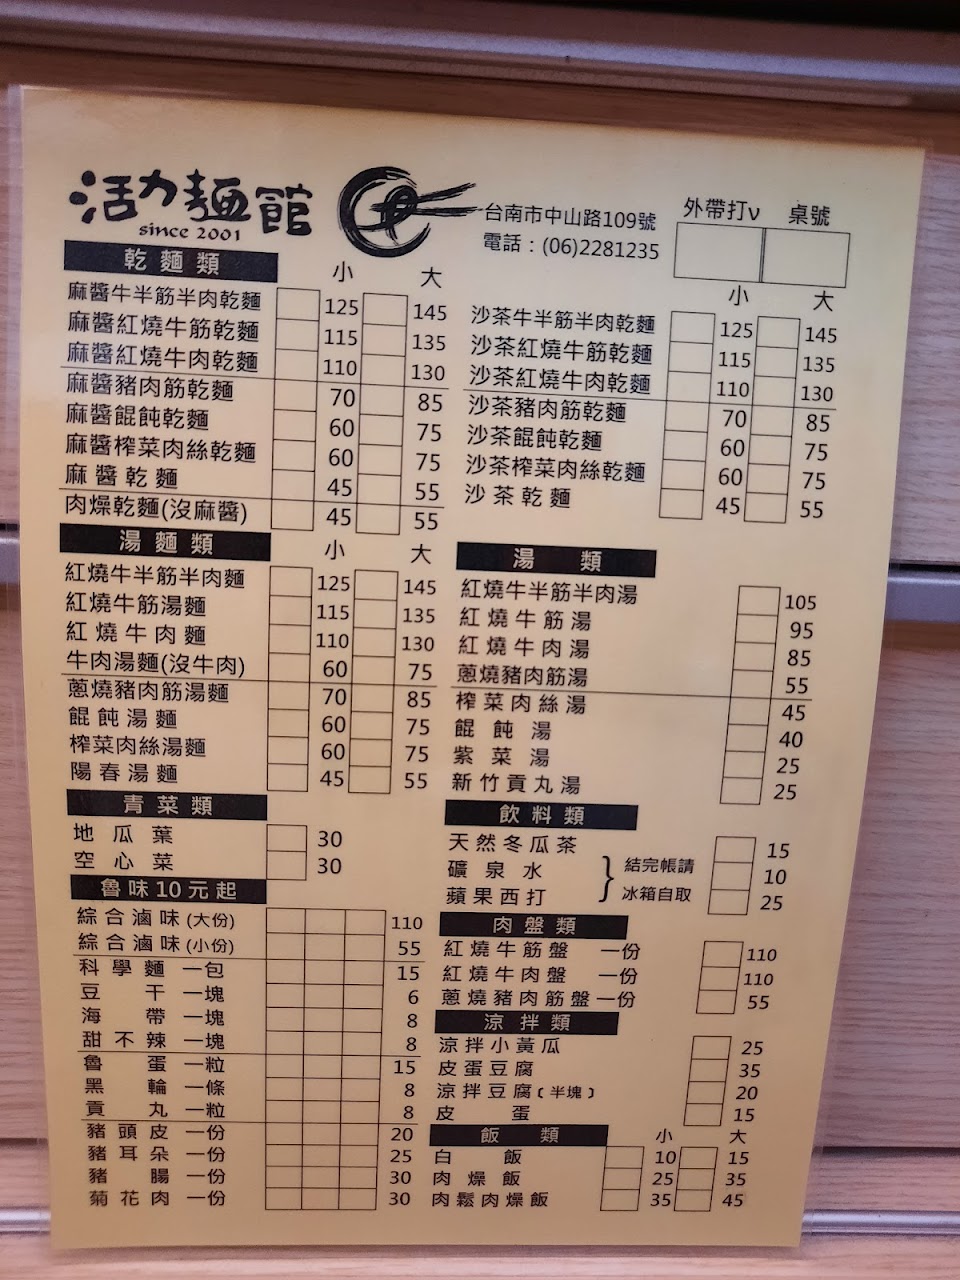 活力麵館
since 2001
台南市中山路109號
電話：(06)2281235
外帶打v 桌號
乾麵類 小 大
麻醬牛半筋半肉乾麵 125 145
麻醬紅燒牛筋乾麵 115 135
麻醬紅燒牛肉乾麵 110 130
麻醬豬肉筋乾麵 70 85
麻醬餛飩乾麵 60 75
麻醬榨菜肉絲乾麵 60 75
麻醬乾麵 45 55
肉燥乾麵(沒麻醬) 45 55
小 大
沙茶牛半筋半肉乾麵 125 145
沙茶紅燒牛筋乾麵 115 135
沙茶紅燒牛肉乾麵 110 130
沙茶豬肉筋乾麵 70 85
沙茶餛飩乾麵 60 75
沙茶榨菜肉絲乾麵 60 75
沙茶乾麵 45 55
湯麵類 小 大
紅燒牛半筋半肉麵 125 145
紅燒牛筋湯麵 115 135
紅燒牛肉麵 110 130
牛肉湯麵(沒牛肉) 60 75
蔥燒豬肉筋湯麵 70 85
餛飩湯麵 60 75
榨菜肉絲湯麵 60 75
陽春湯麵 45 55
湯類
紅燒牛半筋半肉湯 105
紅燒牛筋湯 95
紅燒牛肉湯 85
蔥燒豬肉筋湯 55
榨菜肉絲湯 45
餛飩湯 40
紫菜湯 25
新竹貢丸湯 25
青菜類
地瓜葉 30
空心菜 30
魯味10元起
綜合滷味(大份) 110
綜合滷味(小份) 55
科學麵 一包 15
豆干 一塊 6
海帶 一塊 8
甜不辣 一塊 8
魯蛋 一粒 15
黑輪 一條 8
貢丸 一粒 8
豬頭皮 一份 20
豬耳朵 一份 25
豬腸 一份 30
菊花肉 一份 30
飲料類
天然冬瓜茶 15
礦泉水 10
蘋果西打 25
結完帳請
冰箱自取
肉盤類
紅燒牛筋盤 一份 110
紅燒牛肉盤 一份 110
蔥燒豬肉筋盤 一份 55
涼拌類
涼拌小黃瓜 25
皮蛋豆腐 35
涼拌豆腐(半塊) 20
皮蛋 15
飯類 小 大
白飯 10 15
肉燥飯 25 35
肉鬆肉燥飯 35 45